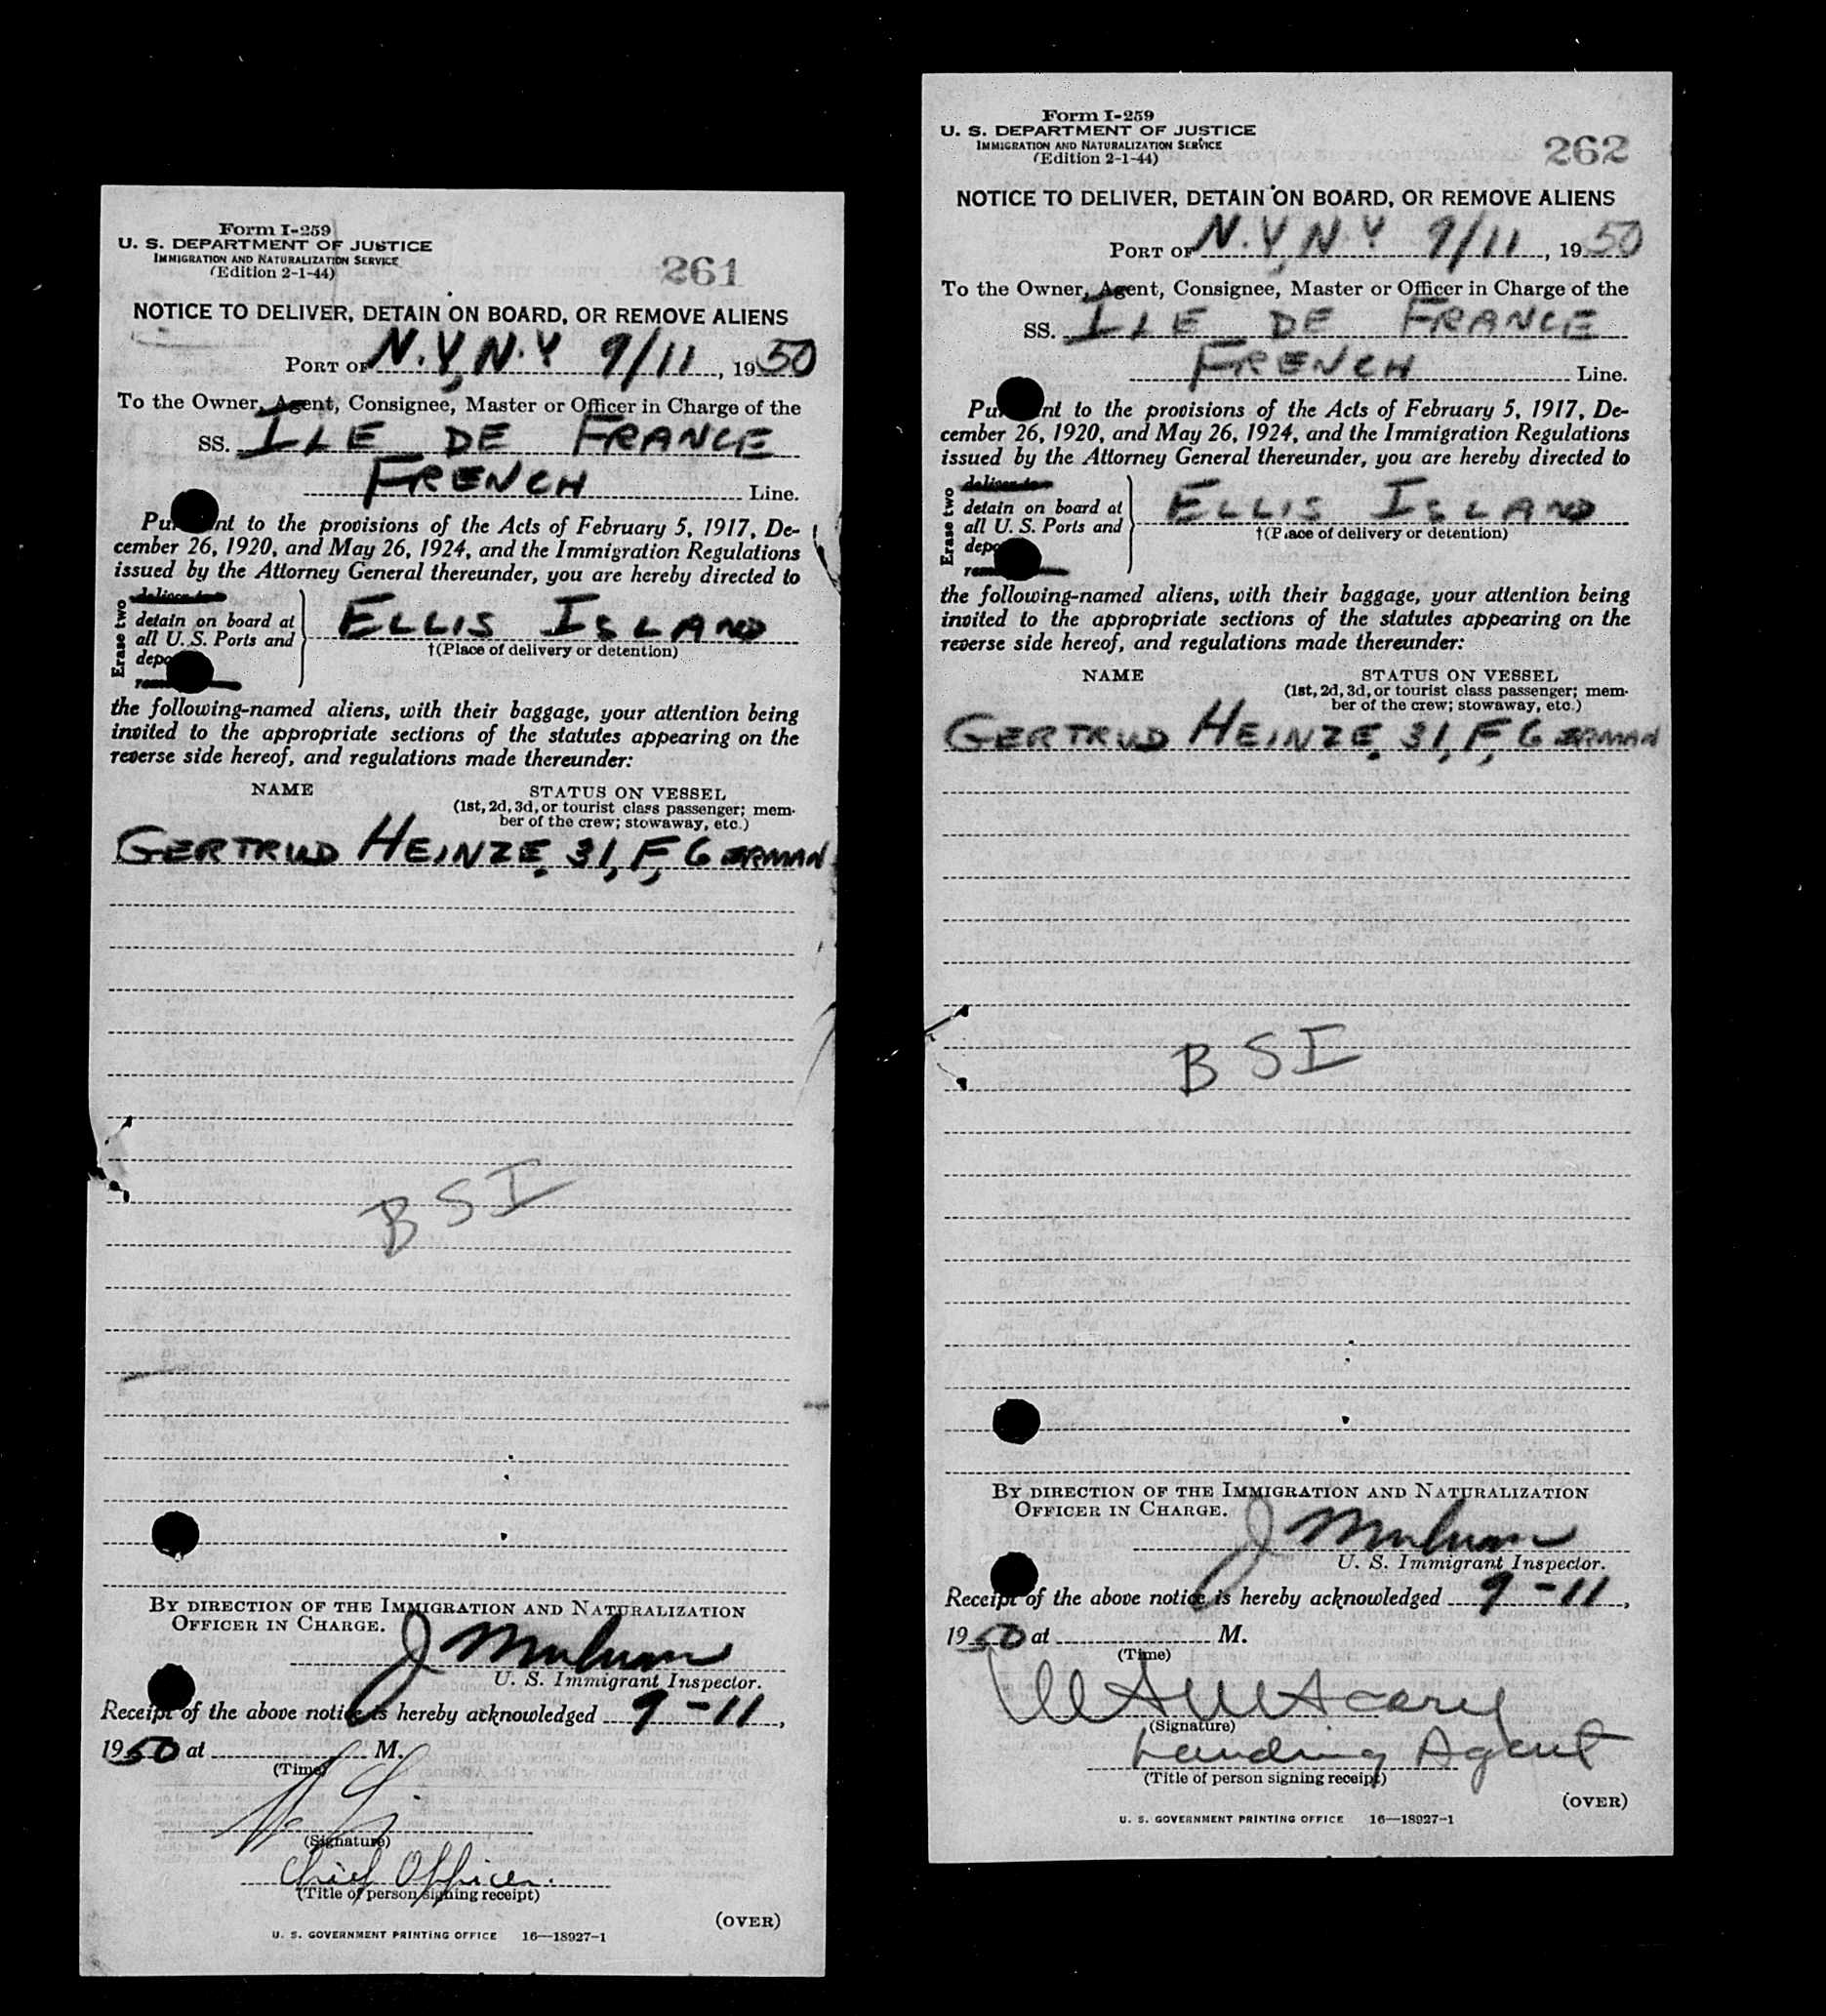 Form I-259
U. S. DEPARTMENT OF JUSTICE
IMMIGRATION AND NATURALIZATION SERVICE
(Edition 2-1-44)
261
NOTICE TO DELIVER, DETAIN ON BOARD, OR REMOVE ALIENS
PORT OF N.Y, N.Y 9/11, 1950
To the Owner, Agent, Consignee, Master or Officer in Charge of the
SS. ILE DE FRANCE
FRENCH Line.
Pu nt to the provisions of the Acts of February 5, 1917, De-
cember 26, 1920, and May 26, 1924, and the Immigration Regulations
issued by the Attorney General thereunder, you are hereby directed to
Erase two
deliver to
detain on board at
all U. S. Ports and
depo
ELLIS ISLAND
†(Place of delivery or detention)
the following-named aliens, with their baggage, your attention being
invited to the appropriate sections of the statutes appearing on the
reverse side hereof, and regulations made thereunder:
NAME STATUS ON VESSEL
(1st, 2d, 3d, or tourist class passenger; mem-
ber of the crew; stowaway, etc.)
GERTRUD HEINZE. 31, F, GERMAN
BSI
BY DIRECTION OF THE IMMIGRATION AND NATURALIZATION
OFFICER IN CHARGE.
J
U. S. Immigrant Inspector.
Receipt of the above notice is hereby acknowledged 9-11,
1950 at M.
(Time)
(Signature)
Chief Officer.
(Title of person signing receipt)
(OVER)
U. S. GOVERNMENT PRINTING OFFICE 16—18927-1
Form I-259
U. S. DEPARTMENT OF JUSTICE
IMMIGRATION AND NATURALIZATION SERVICE
(Edition 2-1-44)
262
NOTICE TO DELIVER, DETAIN ON BOARD, OR REMOVE ALIENS
PORT OF N.Y, N.Y 9/11, 1950
To the Owner, Agent, Consignee, Master or Officer in Charge of the
SS. ILE DE FRANCE
FRENCH Line.
Pu nt to the provisions of the Acts of February 5, 1917, De-
cember 26, 1920, and May 26, 1924, and the Immigration Regulations
issued by the Attorney General thereunder, you are hereby directed to
Erase two
deliver to
detain on board at
all U. S. Ports and
depo
ELLIS ISLAND
†(Place of delivery or detention)
the following-named aliens, with their baggage, your attention being
invited to the appropriate sections of the statutes appearing on the
reverse side hereof, and regulations made thereunder:
NAME STATUS ON VESSEL
(1st, 2d, 3d, or tourist class passenger; mem-
ber of the crew; stowaway, etc.)
GERTRUD HEINZE. 31, F, GERMAN
BSI
BY DIRECTION OF THE IMMIGRATION AND NATURALIZATION
OFFICER IN CHARGE.
J
U. S. Immigrant Inspector.
Receipt of the above notice is hereby acknowledged 9-11,
1950 at M.
(Time)
(Signature)
Landing Agent
(Title of person signing receipt)
(OVER)
U. S. GOVERNMENT PRINTING OFFICE 16—18927-1